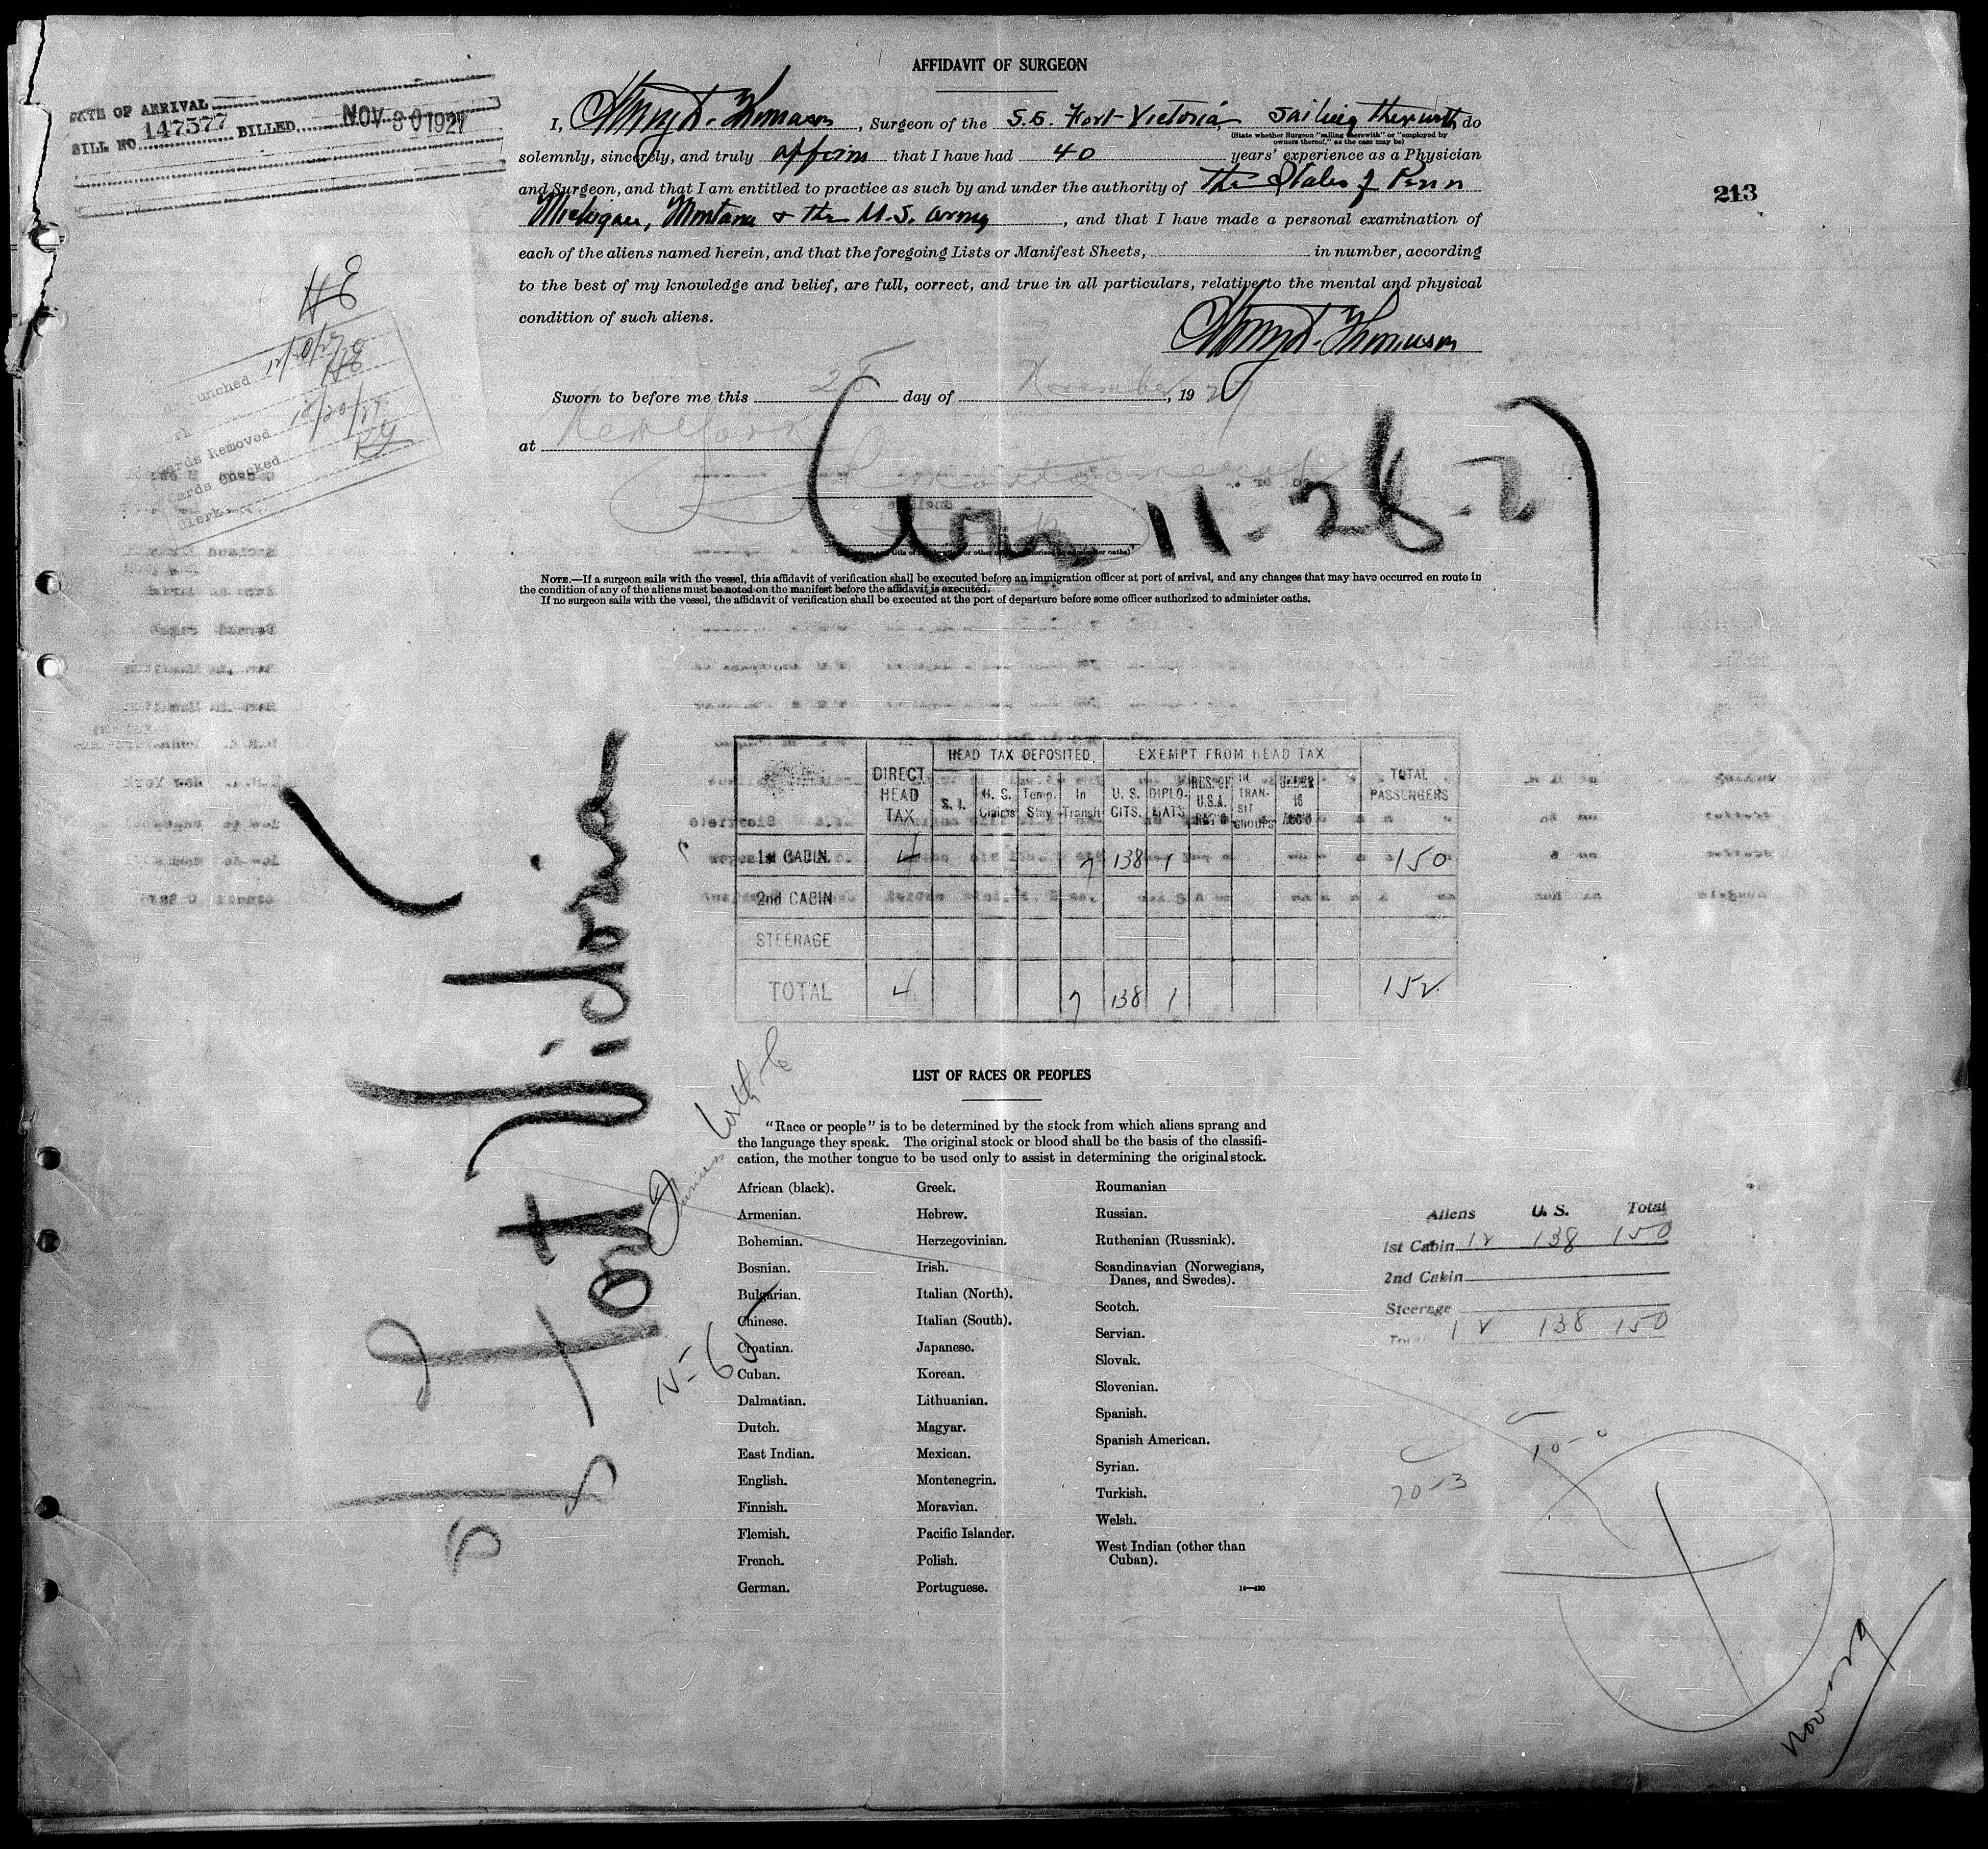 AFFIDAVIT OF SURGEON
DATE OF ARRIVAL
BILL NO 147577 BILLED NOV 30 1927
213
I, Thomason, Surgeon of the S.S. Fort Victoria, sailing therewith do
(State whether Surgeon "sailing therewith" or "employed by
owners thereof," as the case may be)
solemnly, sincerely, and truly affirm that I have had 40 years' experience as a Physician
and Surgeon, and that I am entitled to practice as such by and under the authority of The States of Penn
Michigan, Montana & the U.S. Army, and that I have made a personal examination of
each of the aliens named herein, and that the foregoing Lists or Manifest Sheets, in number, according
to the best of my knowledge and belief, are full, correct, and true in all particulars, relative to the mental and physical
condition of such aliens.
Thomason
HE
Punched 12/8/27
HE
Cards Removed 12/20/27
Cards Checked
Clerk
Sworn to before me this 28 day of November, 1927
at New York
11-28-27
NOTE.—If a surgeon sails with the vessel, this affidavit of verification shall be executed before an immigration officer at port of arrival, and any changes that may have occurred en route in
the condition of any of the aliens must be noted on the manifest before the affidavit is executed.
If no surgeon sails with the vessel, the affidavit of verification shall be executed at the port of departure before some officer authorized to administer oaths.
Fort Victoria
DIRECT HEAD TAX
HEAD TAX DEPOSITED
EXEMPT FROM HEAD TAX
TOTAL PASSENGERS
S. I. U. S. Claims Temp. Stay In Transit U. S. CITS. DIPLO-MATS RES. OF U.S.A. IN TRAN-SIT GROUPS UNDER 16
1st CABIN 4 7 138 1 150
2nd CABIN
STEERAGE
TOTAL 4 7 138 1 152
LIST OF RACES OR PEOPLES
"Race or people" is to be determined by the stock from which aliens sprang and
the language they speak. The original stock or blood shall be the basis of the classifi-
cation, the mother tongue to be used only to assist in determining the original stock.
African (black).
Armenian.
Bohemian.
Bosnian.
Bulgarian.
Chinese.
Croatian.
Cuban.
Dalmatian.
Dutch.
East Indian.
English.
Finnish.
Flemish.
French.
German.
Greek.
Hebrew.
Herzegovinian.
Irish.
Italian (North).
Italian (South).
Japanese.
Korean.
Lithuanian.
Magyar.
Mexican.
Montenegrin.
Moravian.
Pacific Islander.
Polish.
Portuguese.
Roumanian
Russian.
Ruthenian (Russniak).
Scandinavian (Norwegians,
Danes, and Swedes).
Scotch.
Servian.
Slovak.
Slovenian.
Spanish.
Spanish American.
Syrian.
Turkish.
Welsh.
West Indian (other than
Cuban).
14—430
Aliens U. S. Total
1st Cabin 12 138 150
2nd Cabin
Steerage
Total 12 138 150